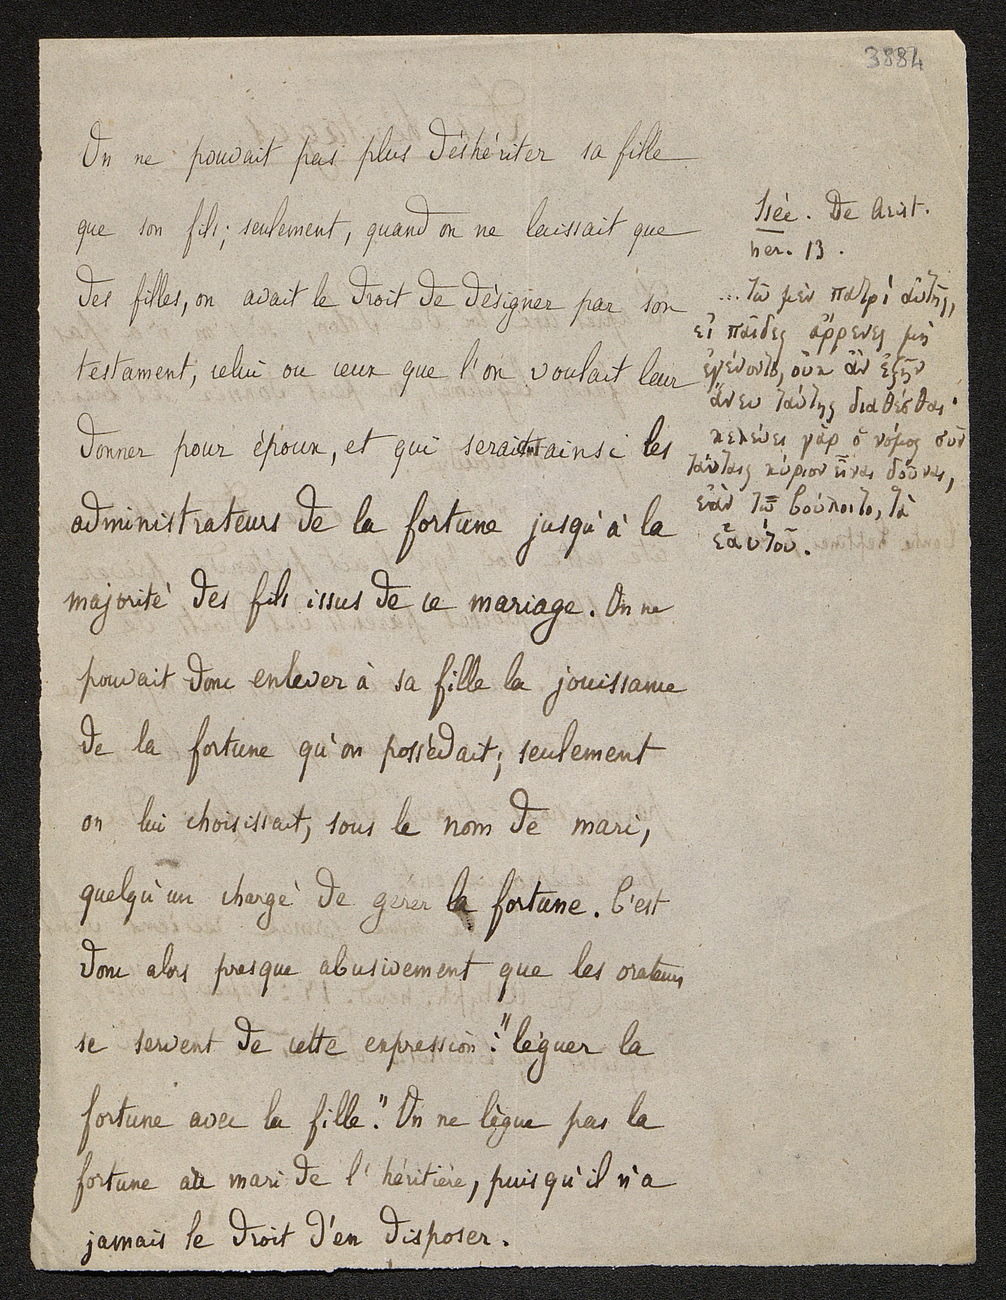 3884
On ne pouvait pas plus déshériter sa fille
que son fils; seulement, quand on ne laissait que
des filles, on avait le droit de désigner par son
testament, celui ou ceux que l'on voulait leur
donner pour époux, et qui seraient ainsi les
administrateurs de la fortune jusqu'à la
majorité des fils issus de ce mariage. On ne
pouvait donc enlever à sa fille la jouissance
de la fortune qu'on possédait; seulement
on lui choisissait, sous le nom de mari,
quelqu'un chargé de gerer la fortune. C'est
donc alors presque abusivement que les orateurs
se servent de cette expression: "léguer la
fortune avec la fille". On ne lègue pas la
fortune au mari de l'héritière, puisqu'il n'a
jamais le droit d'en disposer.
Isée. De Arist.
her. 13.
...τῷ μὲν πατρὶ αὐτῆς,
εἰ παῖδες ἄρρενες μὴ
ἐγένοντο, οὐκ ἂν ἐξῆν
ἄνευ ταύτης διαθέσθαι·
κελεύει γὰρ ὁ νόμος σὺν
ταύταις κύριον εἶναι δοῦναι,
ἐάν τῳ βούλοιτο, τὰ
ἑαυτοῦ.